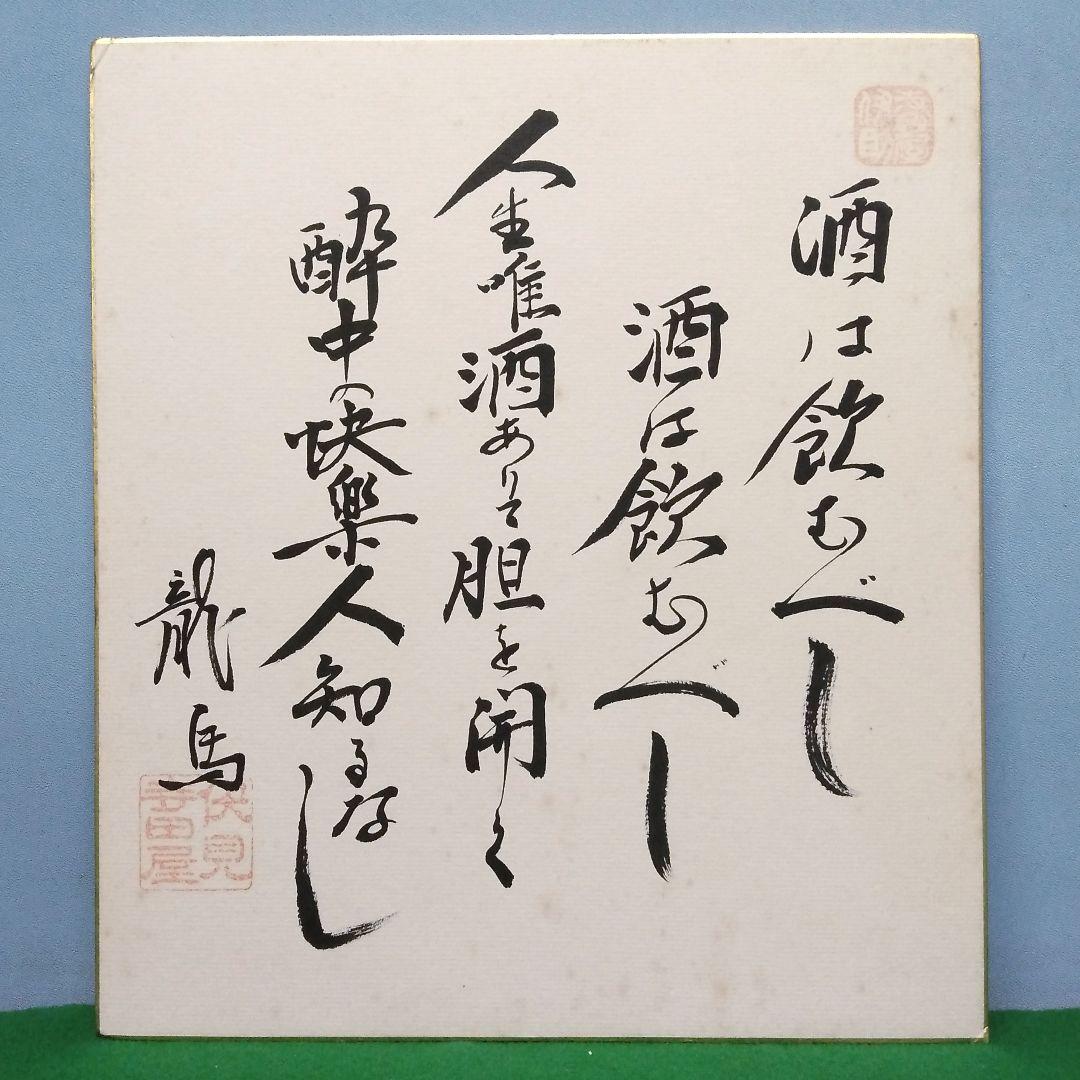 酒は飲むべし
酒は飲むべし
人生唯酒ありて胆を開く
酔中の快楽人知るなし
龍馬
伏見
寺田屋